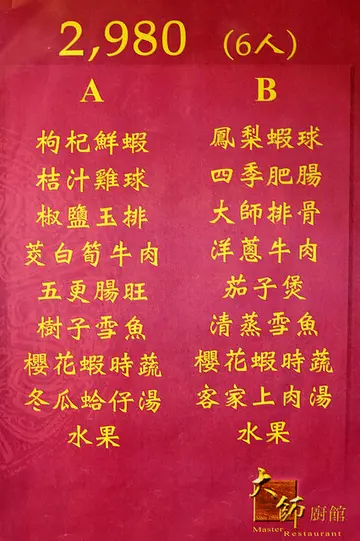 2,980 (6人)
A
枸杞鮮蝦
桔汁雞球
椒鹽玉排
茭白筍牛肉
五更腸旺
樹子雪魚
櫻花蝦時蔬
冬瓜蛤仔湯
水果
B
鳳梨蝦球
四季肥腸
大師排骨
洋蔥牛肉
茄子煲
清蒸雪魚
櫻花蝦時蔬
客家上肉湯
水果
大師廚館
Master Restaurant